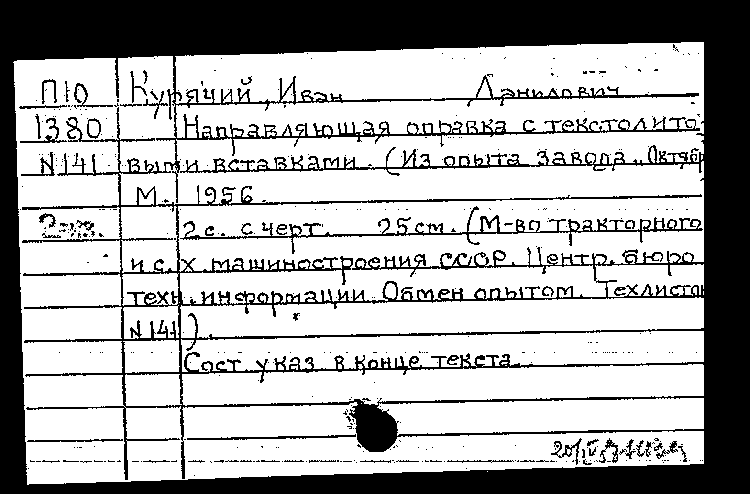 П10 Курячий, Иван Данилович
1380 Направляющая оправка с текстолито
N141 выми вставками. (Из опыта завода „Октябр
М., 1956.
2 экз. 2 с. с черт. 25 см. (М-во тракторного
и с. х. машиностроения СССР. Центр. бюро
техн. информации. Обмен опытом. Техлисток
N 141).
Сост. указ. в конце текста.